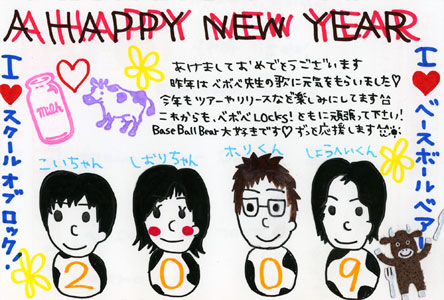 A HAPPY NEW YEAR
I♥スクールオブロック!
Milk
あけましておめでとうございます
昨年はベボベ先生の歌に元気をもらいました♡
今年もツアーやリリースなど楽しみにしてます
これからも、ベボベLOCKS!とともに頑張って下さい!
Base Ball Bear 大好きです♡ずっと応援します
I♥ベースボールベアー!
こいちゃん
しおりちゃん
ホリくん
しょうへいくん
2
0
0
9